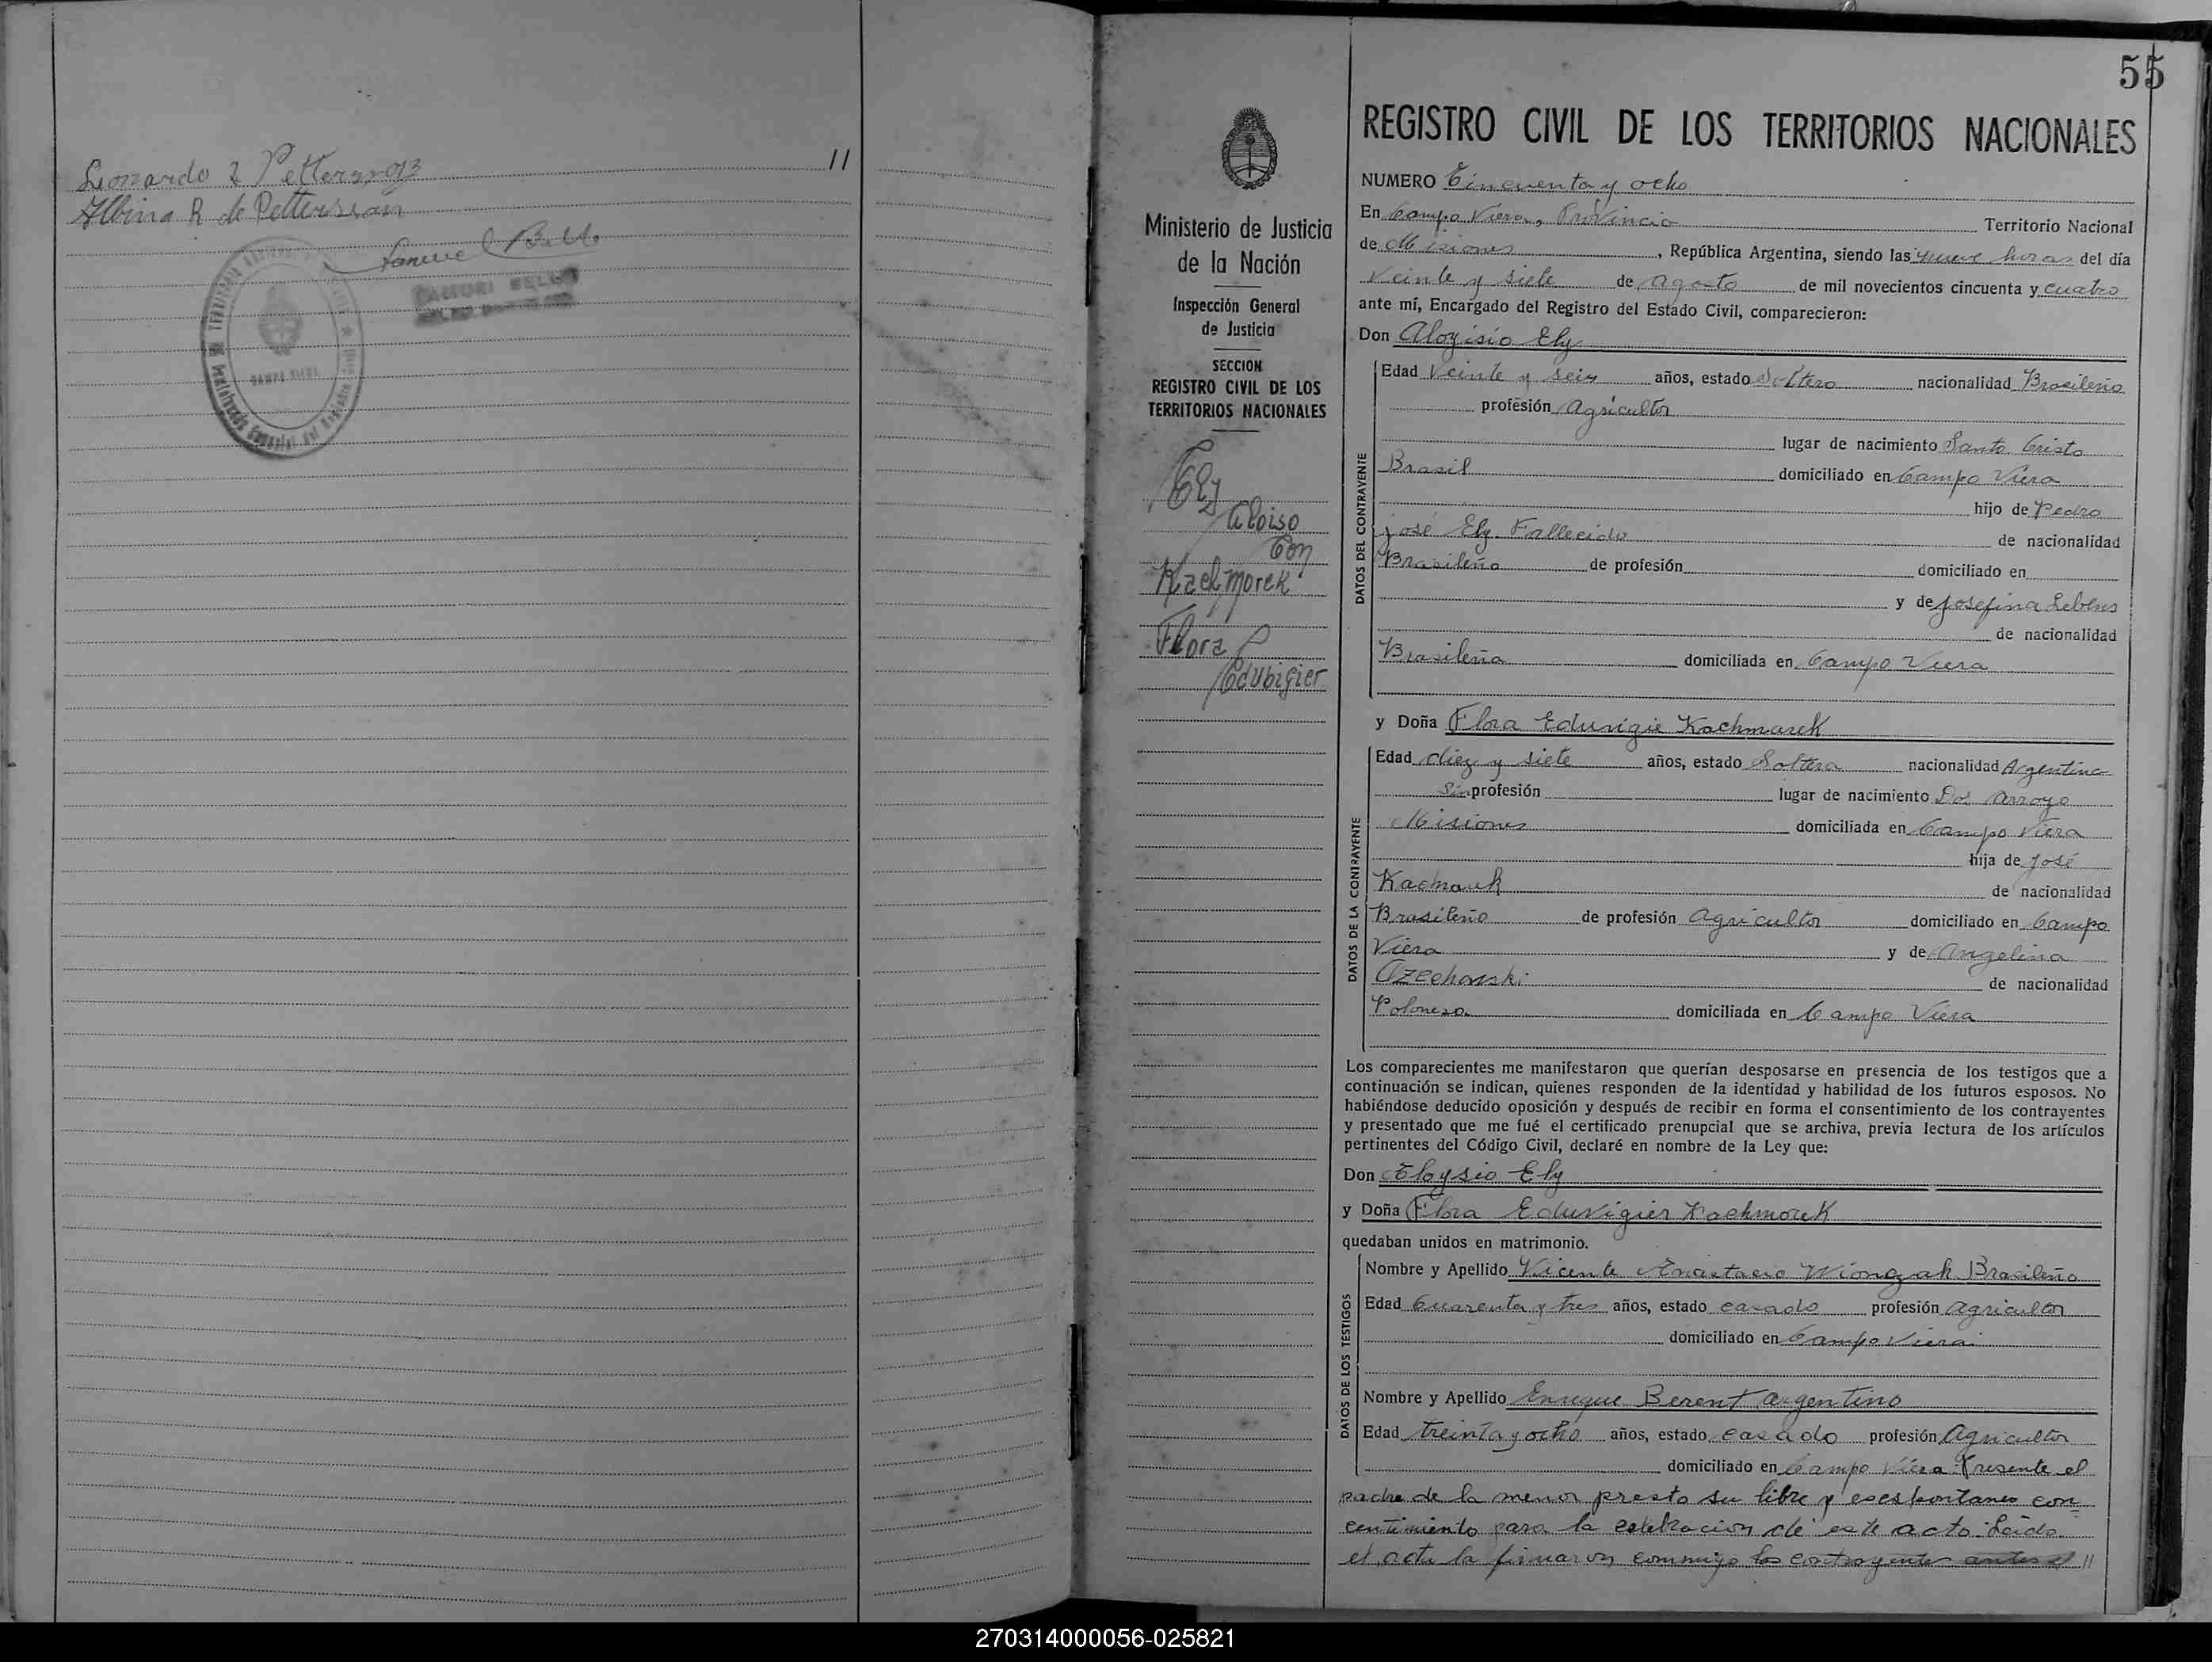 Leonardo
Albina R de Pettersson
11
CAMPO VIERA
55
REGISTRO CIVIL DE LOS TERRITORIOS NACIONALES
Ministerio de Justicia
de la Nación
Inspección General
de Justicia
SECCION
REGISTRO CIVIL DE LOS
TERRITORIOS NACIONALES
Ely
Aloiso
Con
Kachmorek
Flora
Edubigier
NUMERO Cincuenta y ocho
En Campo Viera, Provincia Territorio Nacional
de Misiones, República Argentina, siendo las nueve horas del día
Veinte y siete de Agosto de mil novecientos cincuenta y cuatro
ante mí, Encargado del Registro del Estado Civil, comparecieron:
Don Aloysio Ely
DATOS DEL CONTRAYENTE
Edad Veinte y seis años, estado Soltero nacionalidad Brasileño
profesión Agricultor
lugar de nacimiento Santo Cristo
Brasil domiciliado en Campo Viera
hijo de Pedro
José Ely Fallecido de nacionalidad
Brasileño de profesión domiciliado en
y de Josefina
de nacionalidad
Brasileña domiciliada en Campo Viera
y Doña Flora Eduvigie Kachmarek
DATOS DE LA CONTRAYENTE
Edad diez y siete años, estado Soltera nacionalidad Argentina
Sin profesión lugar de nacimiento Dos Arroyo
Misiones domiciliada en Campo Viera
hija de José
de nacionalidad
Brasileño de profesión Agricultor domiciliado en Campo
Viera y de Angelina
Czechowski de nacionalidad
Polonesa domiciliada en Campo Viera
Los comparecientes me manifestaron que querían desposarse en presencia de los testigos que a
continuación se indican, quienes responden de la identidad y habilidad de los futuros esposos. No
habiéndose deducido oposición y después de recibir en forma el consentimiento de los contrayentes
y presentado que me fué el certificado prenupcial que se archiva, previa lectura de los artículos
pertinentes del Código Civil, declaré en nombre de la Ley que:
Don Eloysio Ely
y Doña Flora Eduvigier Kachmorek
quedaban unidos en matrimonio.
DATOS DE LOS TESTIGOS
Nombre y Apellido Vicente Anastacio Wionczak Brasileño
Edad Cuarenta y tres años, estado casado profesión agricultor
domiciliado en Campo Viera
Nombre y Apellido Enrique Berent argentino
Edad treinta y ocho años, estado casado profesión Agricultor
domiciliado en Campo Viera Presente el
padre de la menor presto su libre y esespontaneo con-
centimiento para la celebracion de este acto. Leida
el acta la firmaron conmigo los contrayentes antes el //
270314000056-025821